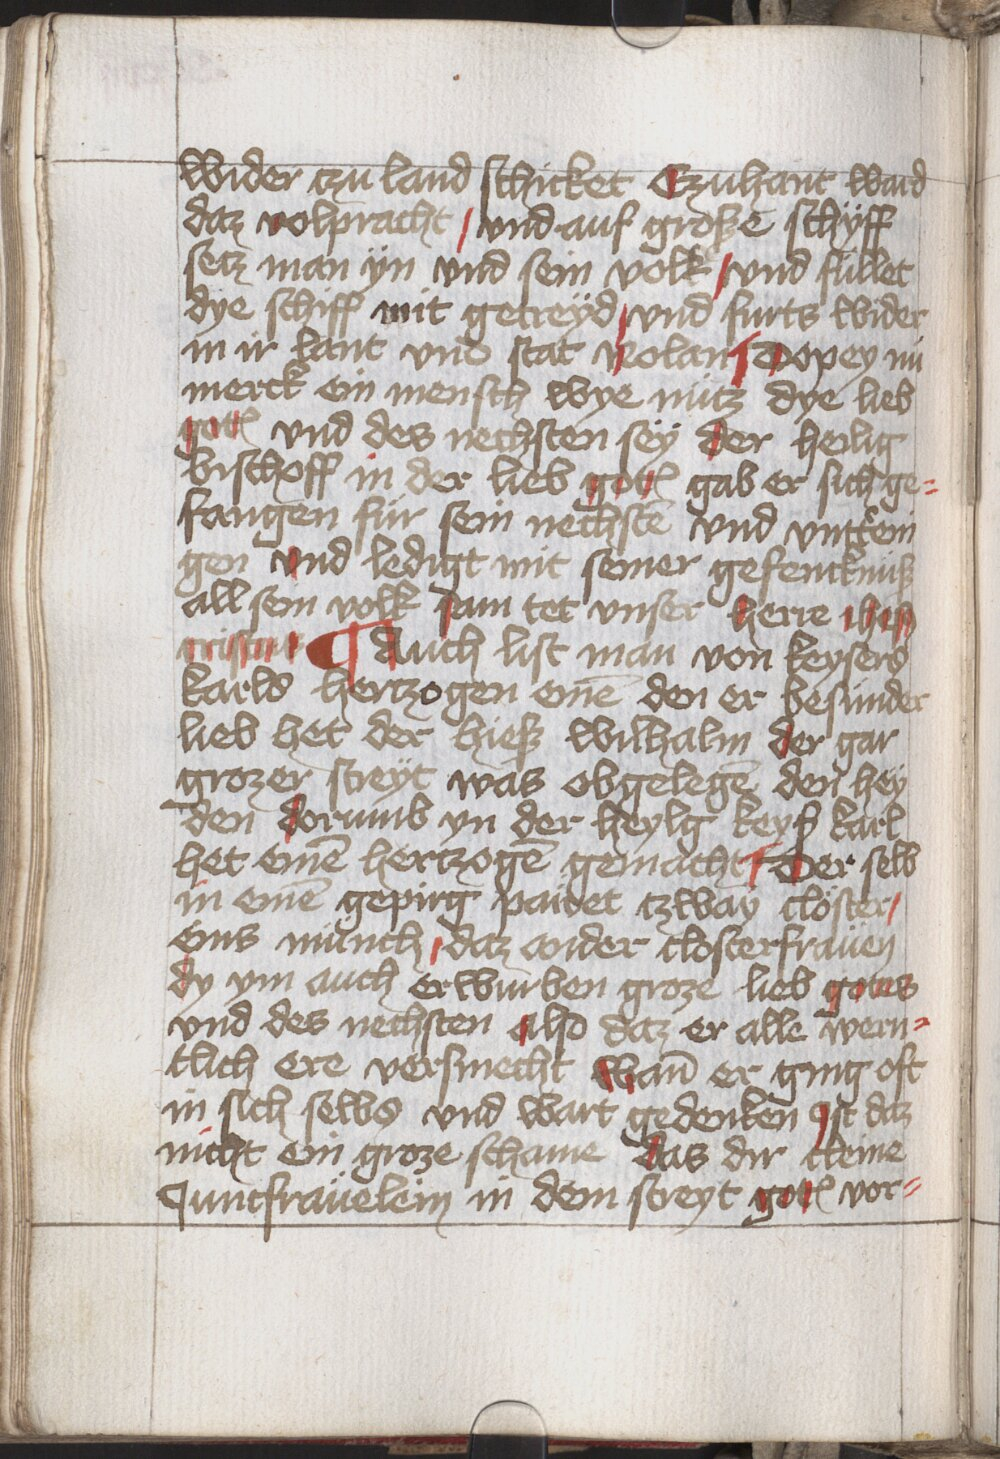 wider czu land schicket Czuhant ward
daz volpracht / und auf große schyff
setz man yn vnd sein volk / vnd füllet
dye schiff mit getreyd / vnd furts wider
in ir lant vnd stat Nolan ¶ Dopey nu
merck ein mensch wye nütz dye lieb
gotz vnd des nechsten sey der heilig
bischoff in der lieb gotz gab er sich ge=
fangen für sein nechstē vnd
gen vnd ledigt mit seiner gefencknuß
all sein volk sam tet vnser herre ihūs
cristus ¶ Auch list man von keysers
karls hertzogen einē den er besunder
lieb het der hieß wilhalm der gar
grozer streyt was obgelegē den hey
den dorumb yn der heylg keyß karl
het einē hertzogē gemacht ¶ Der selb
in einē gepirg pawet czway clöster /
eins münch / daz ander closterfrauen
dy ym auch erwurben groze lieb gotes
vnd des nechsten also daz er alle wern=
tlich ere versmecht wañ er ging oft
in sich selbs vnd wart gedenken Ist daz
nicht ein groze schame das dir cleine
Juncfräuelein in dem streyt gotz vor=